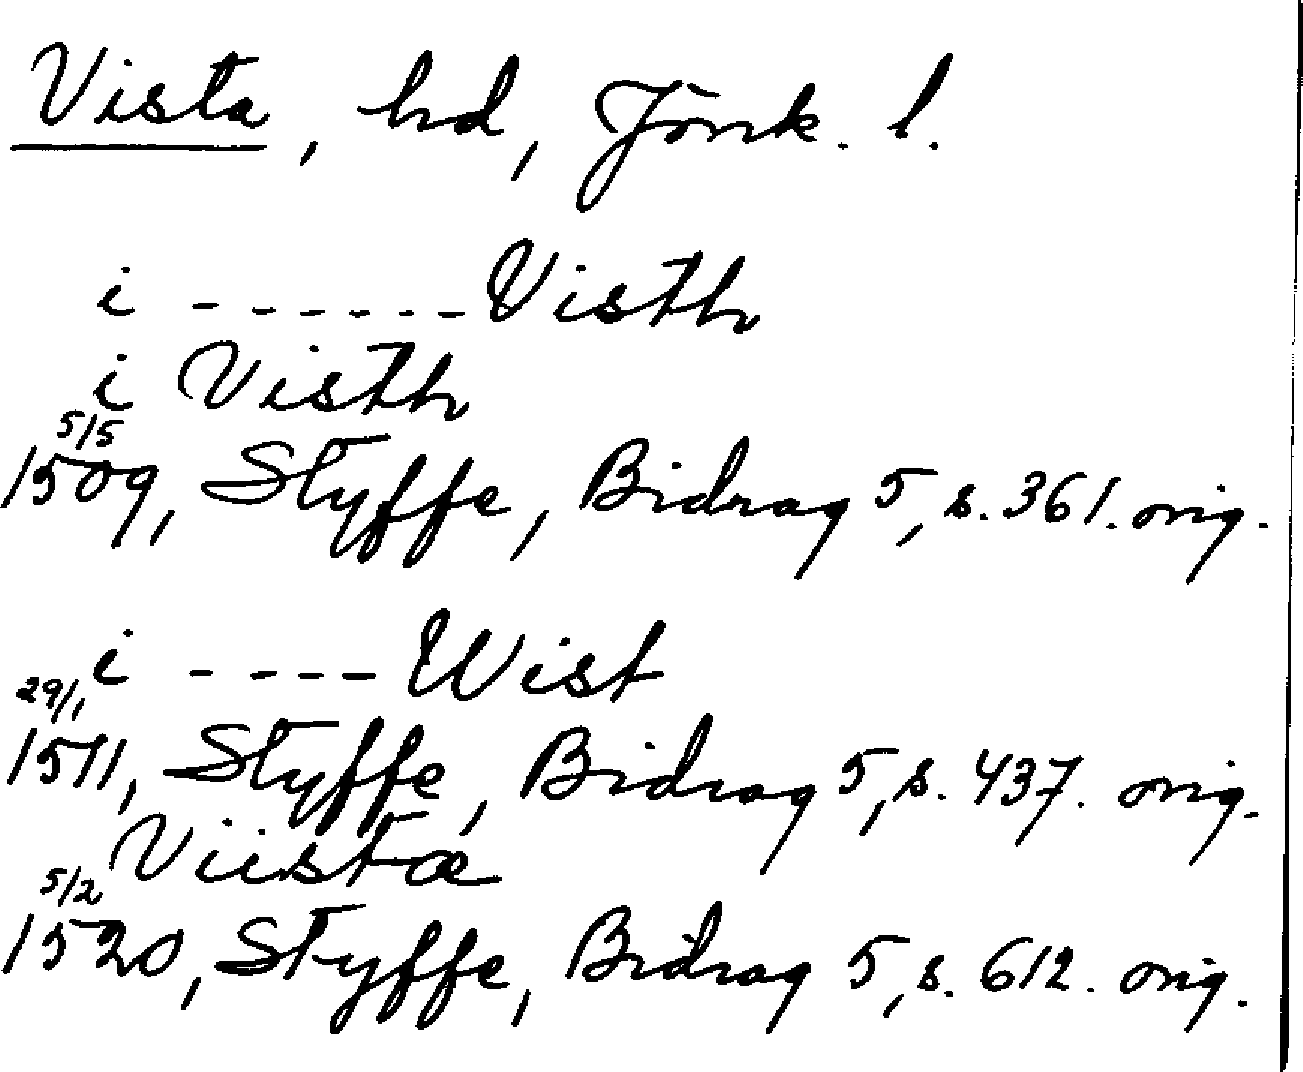 Vista, hd, Jönk. l.
i - - - - - - Visth
i Visth
5/5
1509, Styffe, Bidrag 5, s. 361. orig.
i - - - - Wist
29/1
1511, Styffe, Bidrag 5, s. 437. orig.
Viistæ
5/2
1520, Styffe, Bidrag 5, s. 612. orig.